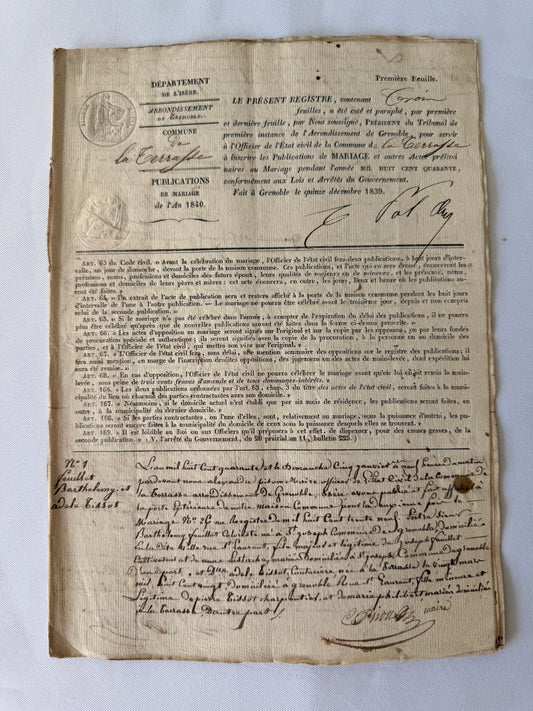 Première Feuille.
DÉPARTEMENT
DE L'ISÈRE.
ARRONDISSEMENT
DE GRENOBLE.
COMMUNE
de
la Terrasse
PUBLICATIONS
DE MARIAGE
de l'An 1840.
LE PRÉSENT REGISTRE, contenant trois
feuilles, a été coté et paraphé, par première
et dernière feuille, par Nous soussigné, PRÉSIDENT du Tribunal de
première instance de l'Arrondissement de Grenoble, pour servir
à l'Officier de l'État civil de la Commune de la Terrasse
à inscrire les Publications de MARIAGE et autres Actes prélimi
naires au Mariage pendant l'année MIL HUIT CENT QUARANTE,
conformément aux Lois et Arrêtés du Gouvernement.
Fait à Grenoble le quinze décembre 1839.
ART. 63 du Code civil. « Avant la célébration du mariage, l'Officier de l'état civil fera deux publications, à huit jours d'inter-
valle, un jour de dimanche, devant la porte de la maison commune. Ces publications, et l'acte qui en sera dressé, énonceront les
prénoms, noms, professions et domiciles des futurs époux, leurs qualités de majeurs ou de mineurs, et les prénoms, noms,
professions et domiciles de leurs pères et mères : cet acte énoncera, en outre, les jours, lieux et heures où les publications au-
ront été faites. »
ART. 64. « Un extrait de l'acte de publication sera et restera affiché à la porte de la maison commune pendant les huit jours
d'intervalle de l'une à l'autre publication. — Le mariage ne pourra être célébré avant le troisième jour, depuis et non compris
celui de la seconde publication. »
ART. 65. « Si le mariage n'a pas été célébré dans l'année, à compter de l'expiration du délai des publications, il ne pourra
plus être célébré qu'après que de nouvelles publications auront été faites dans la forme ci-dessus prescrite. »
ART. 66. « Les actes d'opposition au mariage seront signés sur l'original et sur la copie par les opposans, ou par leurs fondés
de procuration spéciale et authentique; ils seront signifiés avec la copie de la procuration, à la personne ou au domicile des
parties, et à l'Officier de l'état civil, qui mettra son visa sur l'original. »
ART. 67. « L'Officier de l'état civil fera, sans délai, une mention sommaire des oppositions sur le registre des publications; il
fera aussi mention, en marge de l'inscription desdites oppositions, des jugemens ou des actes de main-levée, dont expédition lui
sera remise. »
ART. 68. « En cas d'opposition, l'Officier de l'état civil ne pourra célébrer le mariage avant qu'on lui en ait remis la main-
levée, sous peine de trois cents francs d'amende et de tous dommages-intérêts. »
ART. 166. « Les deux publications ordonnées par l'art. 63, chap. 3 du titre des actes de l'état civil, seront faites à la munici-
palité du lieu où chacune des parties contractantes aura son domicile. »
ART. 167. « Néanmoins, si le domicile actuel n'est établi que par six mois de résidence, les publications seront faites, en
outre, à la municipalité du dernier domicile. »
ART. 168. « Si les parties contractantes, ou l'une d'elles, sont, relativement au mariage, sous la puissance d'autrui, les pu-
blications seront encore faites à la municipalité du domicile de ceux sous la puissance desquels elles se trouvent. »
ART. 169. « Il est loisible au Roi ou aux Officiers qu'il préposera à cet effet, de dispenser, pour des causes graves, de la
seconde publication. » (V. l'arrêté du Gouvernement, du 20 prairial an 11, bulletin 225.)
N° 1
feuillet
Barthelemy, et
adele Tissot
L'an mil huit cent quarante et le Dimanche Cinq janvier à neuf heures du matin
pardevant nous maire officier de l'Etat Civil de la Commune
de la Terrasse arrondissement de Grenoble, Isère, avons publié
la porte Exterieure de notre Maison Commune pour la
Mariage N° 26 au Registre de mil huit cent trente neuf, Entre Sieur
Barthelemy feuillet Celibataire né à St joseph Commune de grenoble, domicilié
rue St Laurent, fils majeur et legitime de joseph feuillet
Cultivateur et de mariés, Domiciliés à St joseph Commune de grenoble
D'une part, et Dlle adele Tissot, Couturiere née à la Terrasse le vingt mars
mil huit cent vingt, Domiciliée à grenoble Rue St Laurent, fille mineure et
Légitime de pierre Tissot charpentier, et de marie philibert mariés, domiciliés
à la terrasse D'autre part /
maire